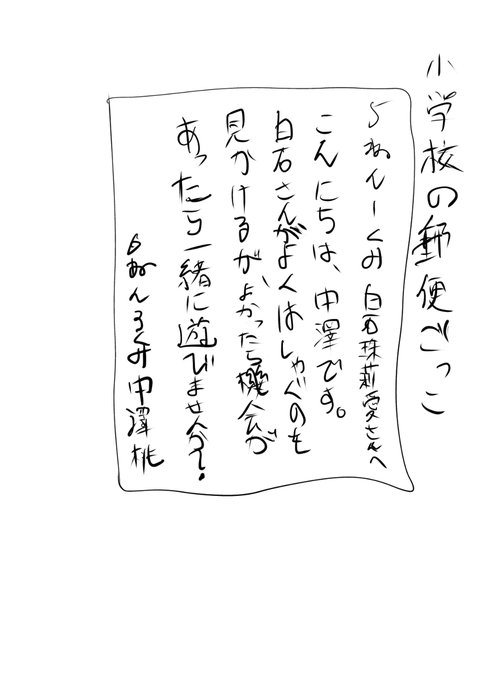 小学校の郵便ごっこ
5ねん一くみ 白石珠莉愛さんへ
こんにちは、中澤です。
白石さんがよくはしゃぐのを
見かけるが、よかったら機会が
あったら一緒に遊びませんか?
6ねんろくみ中澤桃